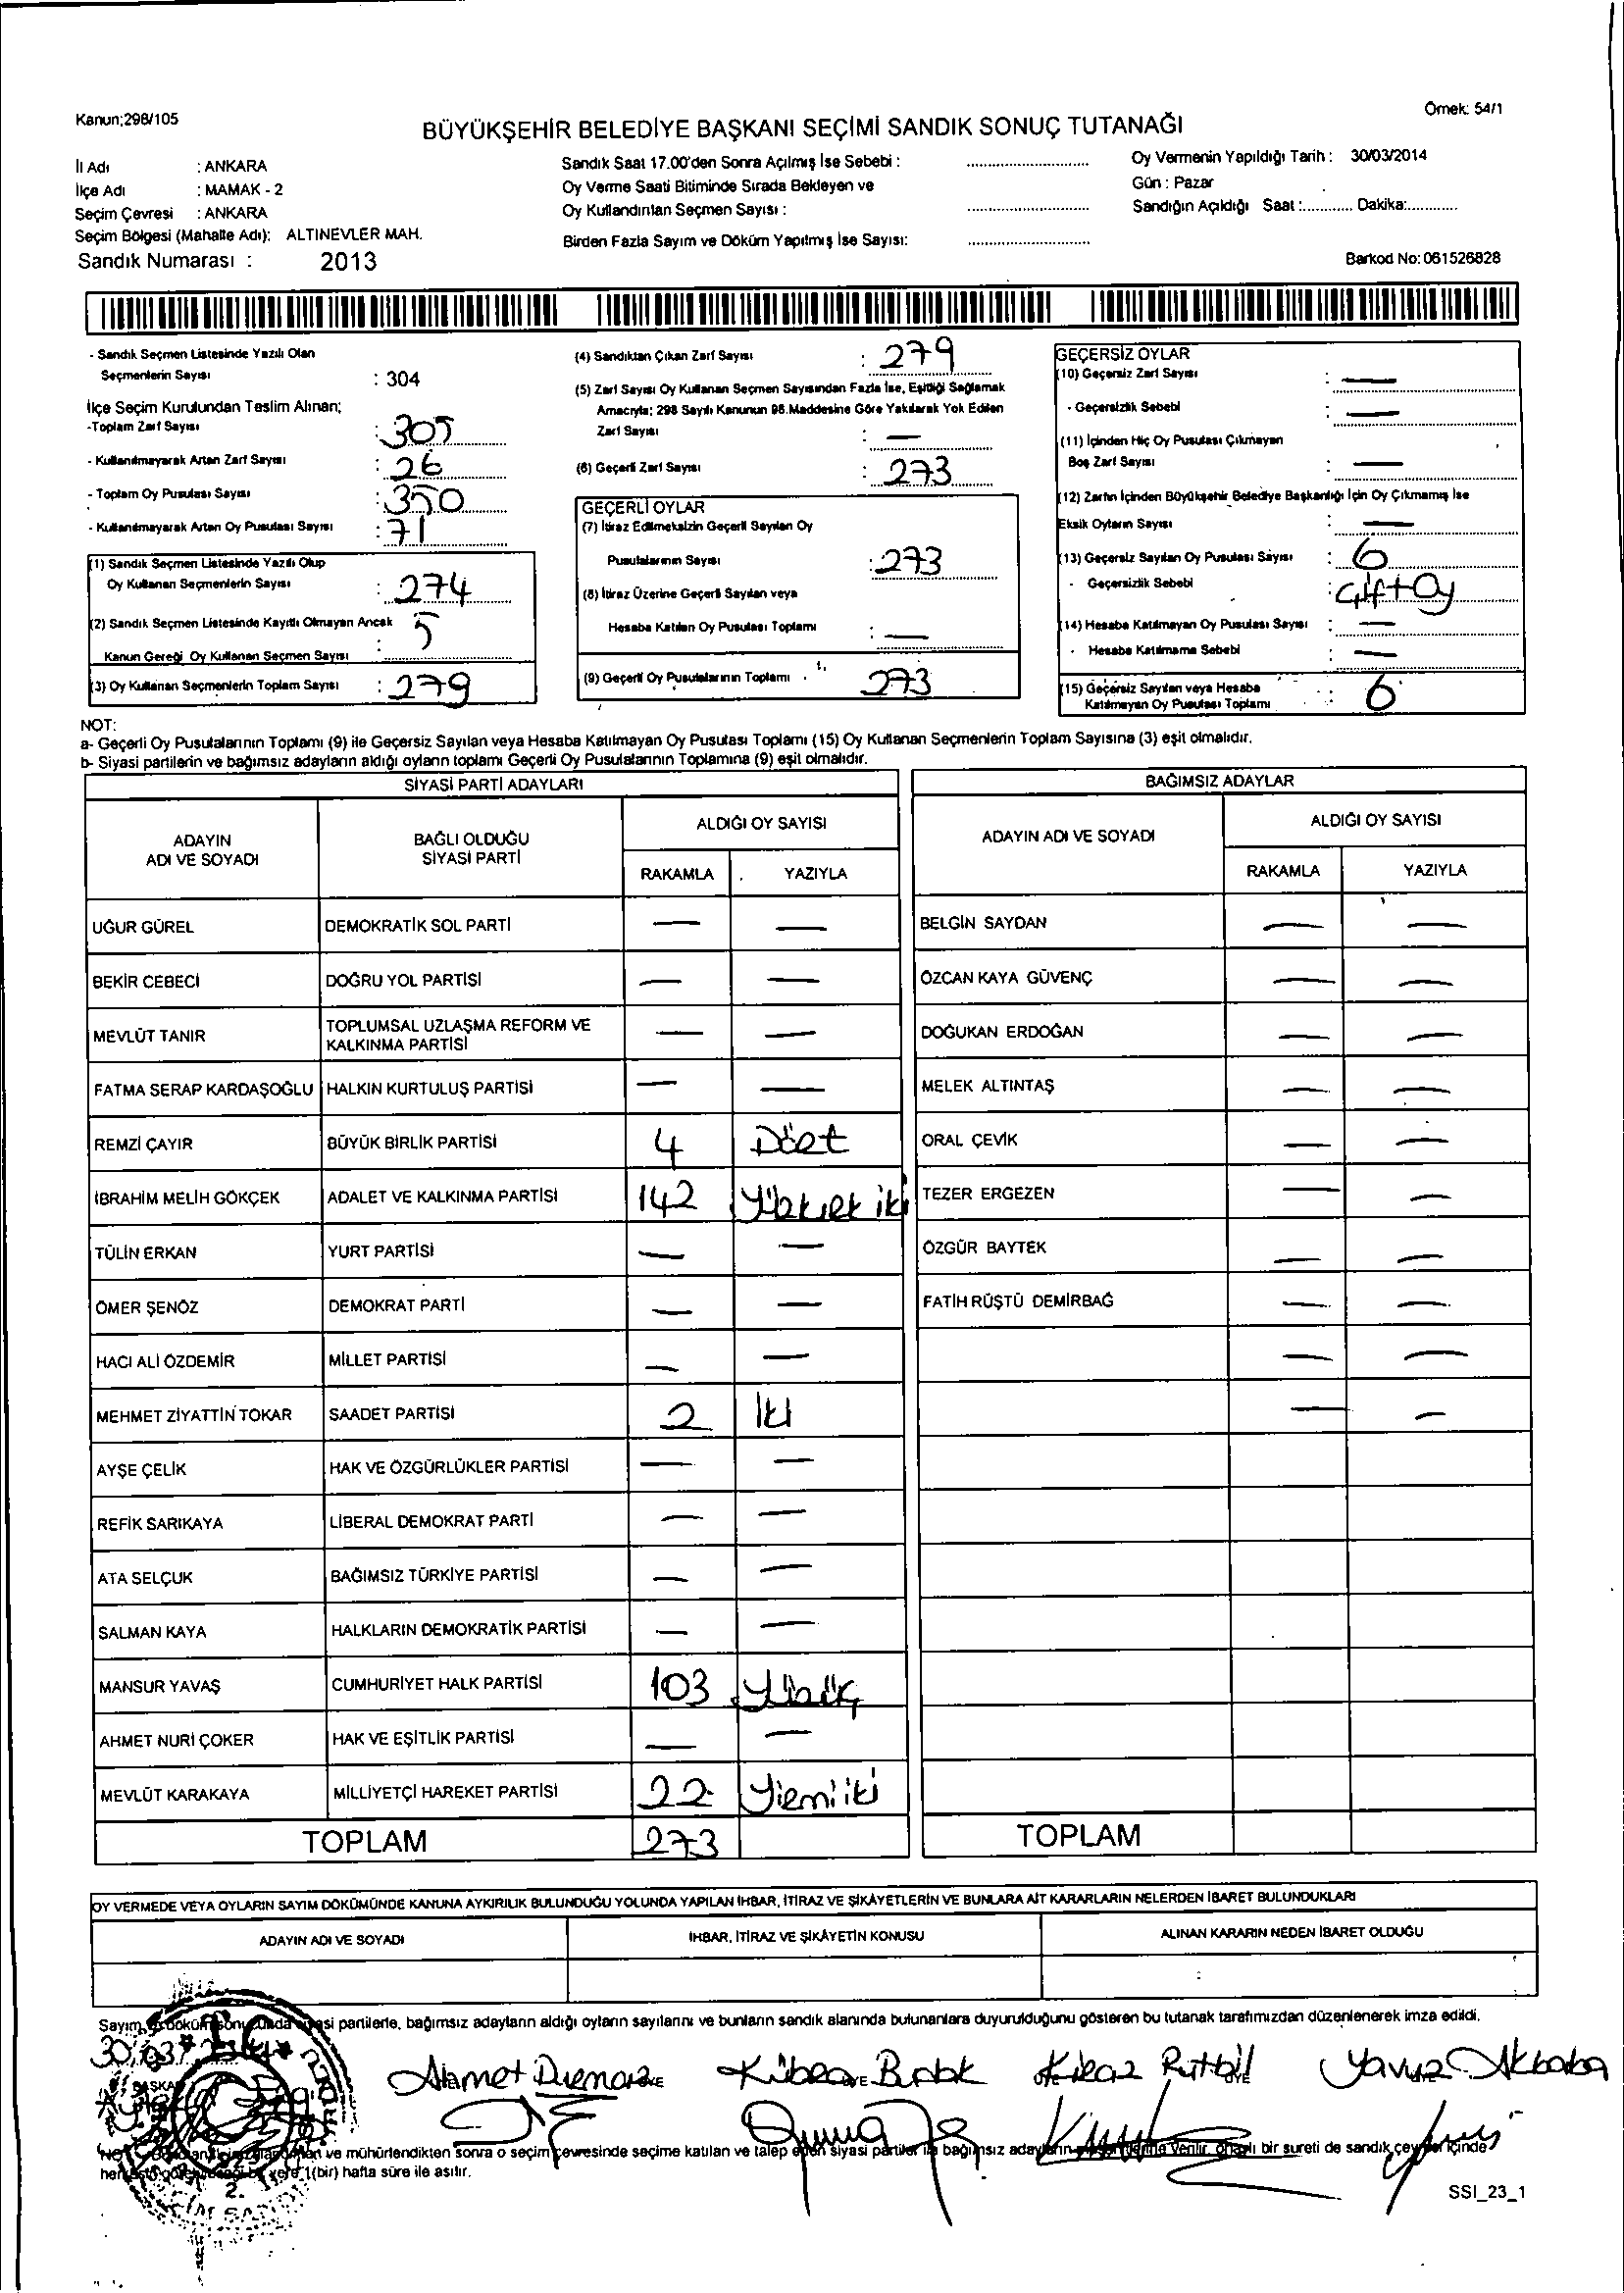 Kanun;298/105
Örnek: 54/1
BÜYÜKŞEHİR BELEDİYE BAŞKANI SEÇİMİ SANDIK SONUÇ TUTANAĞI
İl Adı : ANKARA
İlçe Adı : MAMAK - 2
Seçim Çevresi : ANKARA
Seçim Bölgesi (Mahalle Adı): ALTINEVLER MAH.
Sandık Numarası : 2013
Sandık Saat 17.00'den Sonra Açılmış İse Sebebi :
Oy Verme Saati Bitiminde Sırada Bekleyen ve
Oy Kullandırılan Seçmen Sayısı :
Birden Fazla Sayım ve Döküm Yapılmış İse Sayısı:
Oy Vermenin Yapıldığı Tarih : 30/03/2014
Gün : Pazar
Sandığın Açıldığı Saat :............ Dakika:............
Barkod No: 061526828
- Sandık Seçmen Listesinde Yazılı Olan
Seçmenlerin Sayısı : 304
İlçe Seçim Kurulundan Teslim Alınan;
-Toplam Zarf Sayısı : 305
- Kullanılmayarak Artan Zarf Sayısı : 26
- Toplam Oy Pusulası Sayısı : 350
- Kullanılmayarak Artan Oy Pusulası Sayısı : 71
(1) Sandık Seçmen Listesinde Yazılı Olup
Oy Kullanan Seçmenlerin Sayısı : 274
(2) Sandık Seçmen Listesinde Kayıtlı Olmayan Ancak
Kanun Gereği Oy Kullanan Seçmen Sayısı : 5
(3) Oy Kullanan Seçmenlerin Toplam Sayısı : 279
(4) Sandıktan Çıkan Zarf Sayısı : 279
(5) Zarf Sayısı Oy Kullanan Seçmen Sayısından Fazla İse, Eşitliği Sağlamak
Amacıyla; 298 Sayılı Kanunun 98.Maddesine Göre Yakılarak Yok Edilen
Zarf Sayısı : —
(6) Geçerli Zarf Sayısı : 273
GEÇERLİ OYLAR
(7) İtiraz Edilmeksizin Geçerli Sayılan Oy
Pusulalarının Sayısı : 273
(8) İtiraz Üzerine Geçerli Sayılan veya
Hesaba Katılan Oy Pusulası Toplamı : —
(9) Geçerli Oy Pusulalarının Toplamı 273
GEÇERSİZ OYLAR
(10) Geçersiz Zarf Sayısı : —
- Geçersizlik Sebebi : —
(11) İçinden Hiç Oy Pusulası Çıkmayan
Boş Zarf Sayısı : —
(12) Zarfın İçinden Büyükşehir Belediye Başkanlığı İçin Oy Çıkmamış İse
Eksik Oyların Sayısı : —
(13) Geçersiz Sayılan Oy Pusulası Sayısı : 6
- Geçersizlik Sebebi : Çift Oy
(14) Hesaba Katılmayan Oy Pusulası Sayısı : —
- Hesaba Katılmama Sebebi : —
(15) Geçersiz Sayılan veya Hesaba
Katılmayan Oy Pusulası Toplamı : 6
NOT:
a- Geçerli Oy Pusulalarının Toplamı (9) ile Geçersiz Sayılan veya Hesaba Katılmayan Oy Pusulası Toplamı (15) Oy Kullanan Seçmenlerin Toplam Sayısına (3) eşit olmalıdır.
b- Siyasi partilerin ve bağımsız adayların aldığı oyların toplamı Geçerli Oy Pusulalarının Toplamına (9) eşit olmalıdır.
SİYASİ PARTİ ADAYLARI
ADAYIN ADI VE SOYADI BAĞLI OLDUĞU SİYASİ PARTİ ALDIĞI OY SAYISI
RAKAMLA YAZIYLA
UĞUR GÜREL DEMOKRATİK SOL PARTİ — —
BEKİR CEBECİ DOĞRU YOL PARTİSİ — —
MEVLÜT TANIR TOPLUMSAL UZLAŞMA REFORM VE KALKINMA PARTİSİ — —
FATMA SERAP KARDAŞOĞLU HALKIN KURTULUŞ PARTİSİ — —
REMZİ ÇAYIR BÜYÜK BİRLİK PARTİSİ 4 Dört
İBRAHİM MELİH GÖKÇEK ADALET VE KALKINMA PARTİSİ 142 Yüzkırk iki
TÜLİN ERKAN YURT PARTİSİ — —
ÖMER ŞENÖZ DEMOKRAT PARTİ — —
HACI ALİ ÖZDEMİR MİLLET PARTİSİ — —
MEHMET ZİYATTİN TOKAR SAADET PARTİSİ 2 İki
AYŞE ÇELİK HAK VE ÖZGÜRLÜKLER PARTİSİ — —
REFİK SARIKAYA LİBERAL DEMOKRAT PARTİ — —
ATA SELÇUK BAĞIMSIZ TÜRKİYE PARTİSİ — —
SALMAN KAYA HALKLARIN DEMOKRATİK PARTİSİ — —
MANSUR YAVAŞ CUMHURİYET HALK PARTİSİ 103 Yüzüç
AHMET NURİ ÇOKER HAK VE EŞİTLİK PARTİSİ — —
MEVLÜT KARAKAYA MİLLİYETÇİ HAREKET PARTİSİ 22 Yirmi iki
TOPLAM 273
BAĞIMSIZ ADAYLAR
ADAYIN ADI VE SOYADI ALDIĞI OY SAYISI
RAKAMLA YAZIYLA
BELGİN SAYDAN — —
ÖZCAN KAYA GÜVENÇ — —
DOĞUKAN ERDOĞAN — —
MELEK ALTINTAŞ — —
ORAL ÇEVİK — —
TEZER ERGEZEN — —
ÖZGÜR BAYTEK — —
FATİH RÜŞTÜ DEMİRBAĞ — —
— —
— —
TOPLAM
OY VERMEDE VEYA OYLARIN SAYIM DÖKÜMÜNDE KANUNA AYKIRILIK BULUNDUĞU YOLUNDA YAPILAN İHBAR, İTİRAZ VE ŞİKÂYETLERİN VE BUNLARA AİT KARARLARIN NELERDEN İBARET BULUNDUKLARI
ADAYIN ADI VE SOYADI İHBAR, İTİRAZ VE ŞİKÂYETİN KONUSU ALINAN KARARIN NEDEN İBARET OLDUĞU
Sayım partilerle, bağımsız adayların aldığı oyların sayılarını ve bunların sandık alanında bulunanlara duyurulduğunu gösteren bu tutanak tarafımızdan düzenlenerek imza edildi.
Ahmet Kübra Yavuz Akbaba
ve mühürlendikten sonra o seçim çevresinde seçime katılan ve talep eden siyasi partiler ile bağımsız verilir. bir sureti de sandık
1(bir) hafta süre ile asılır.
SSI_23_1